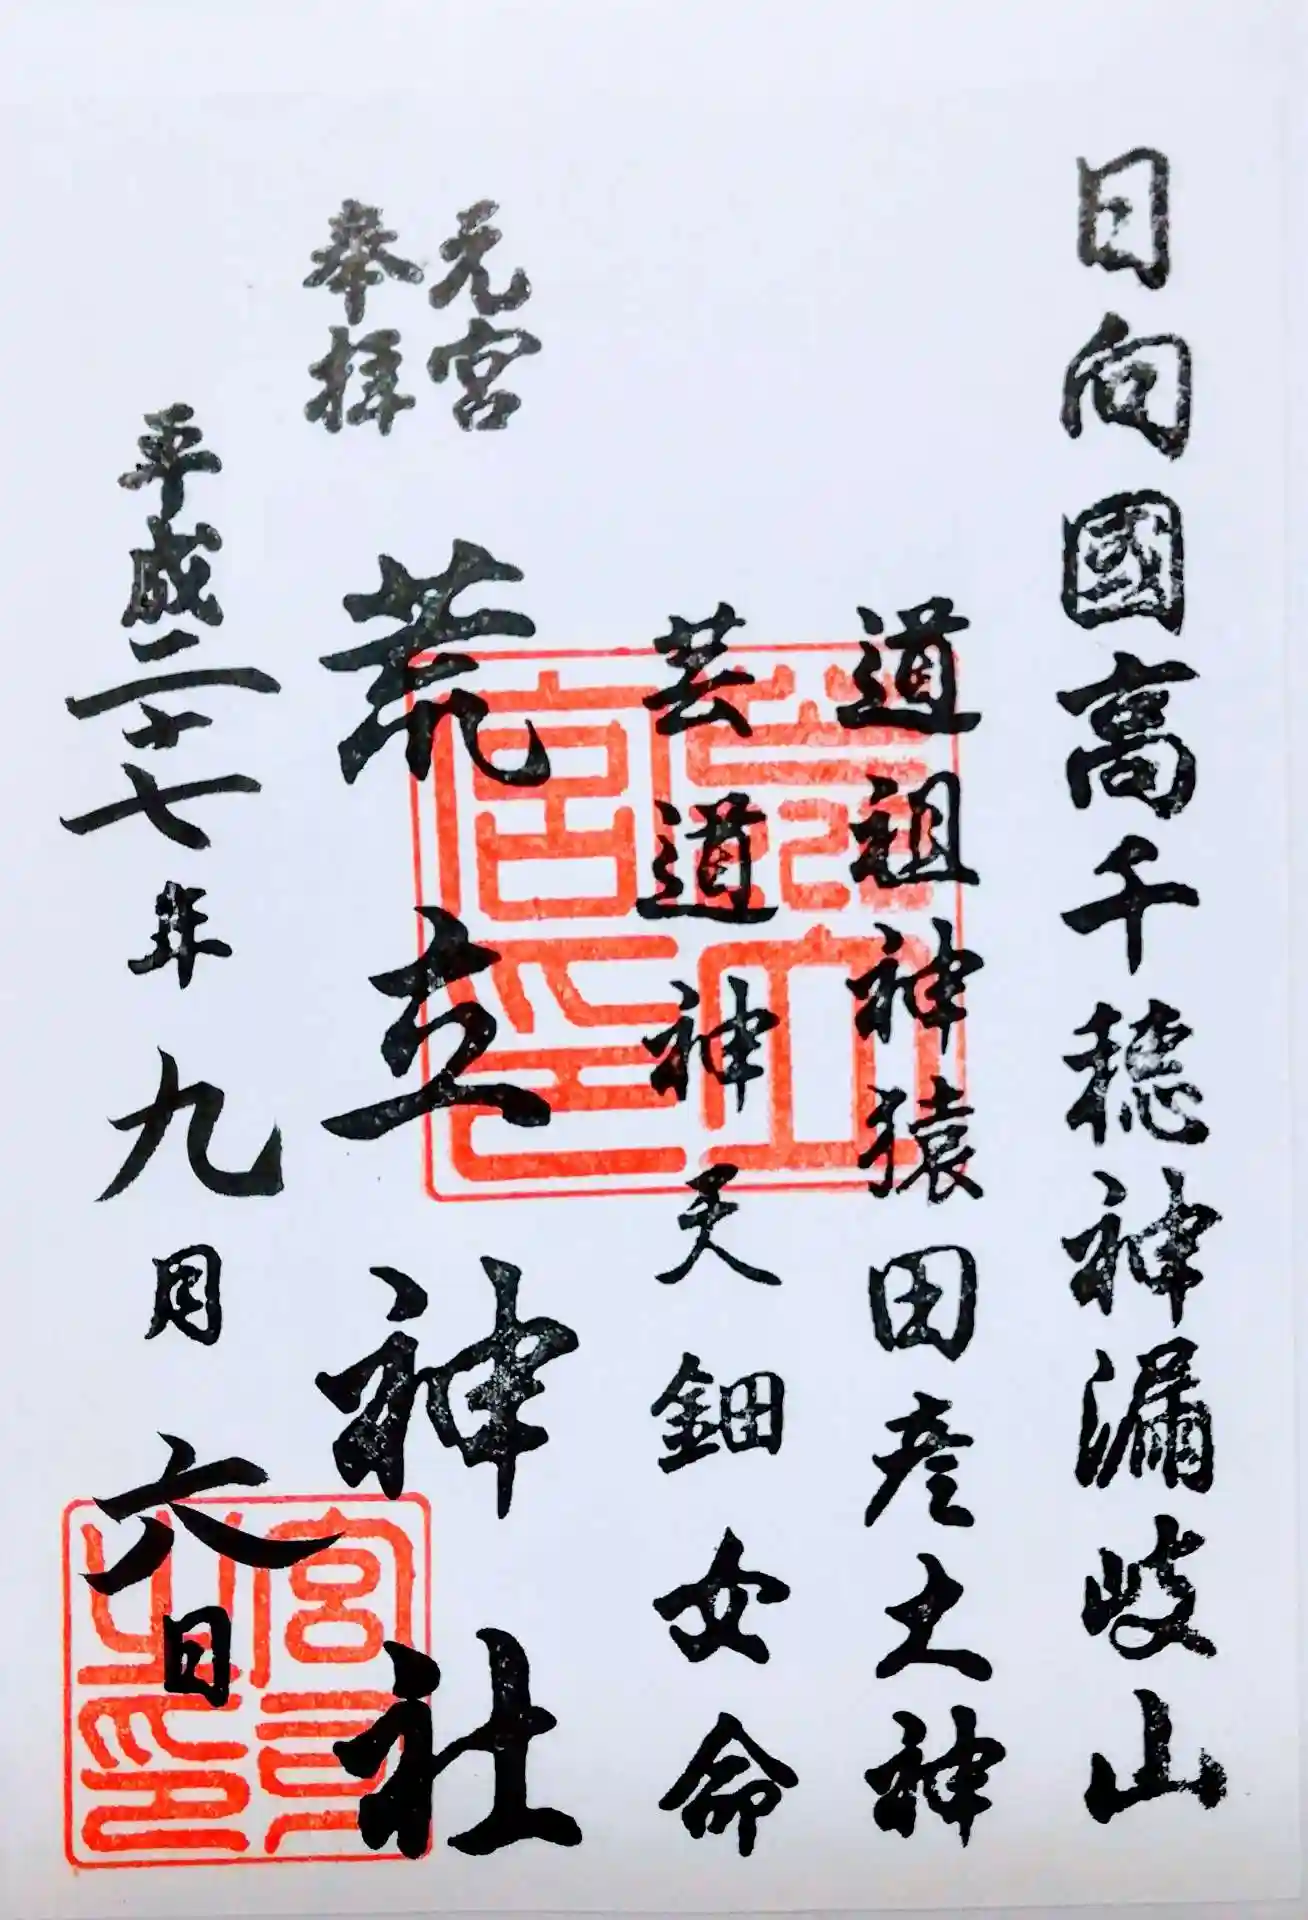 日向國高千穂神漏岐山
道祖神猿田彦大神
芸道神天鈿女命
元宮
奉拝
荒立神社
平成二十七年九月六日
宮司之印